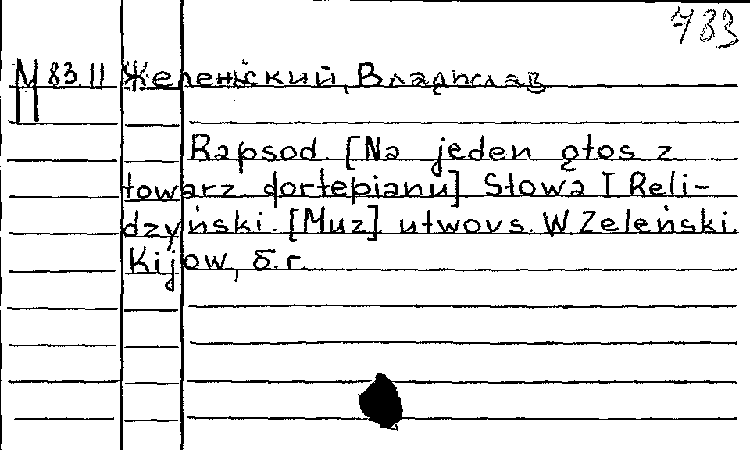 783
М 83.11 Желеньский, Владислав
Rapsod. [Na jeden głos z
towarz dortepianu] Słowa I Reli-
dzyński. [Muz] utwovs. W. Zeleński.
Kijow, б.г.